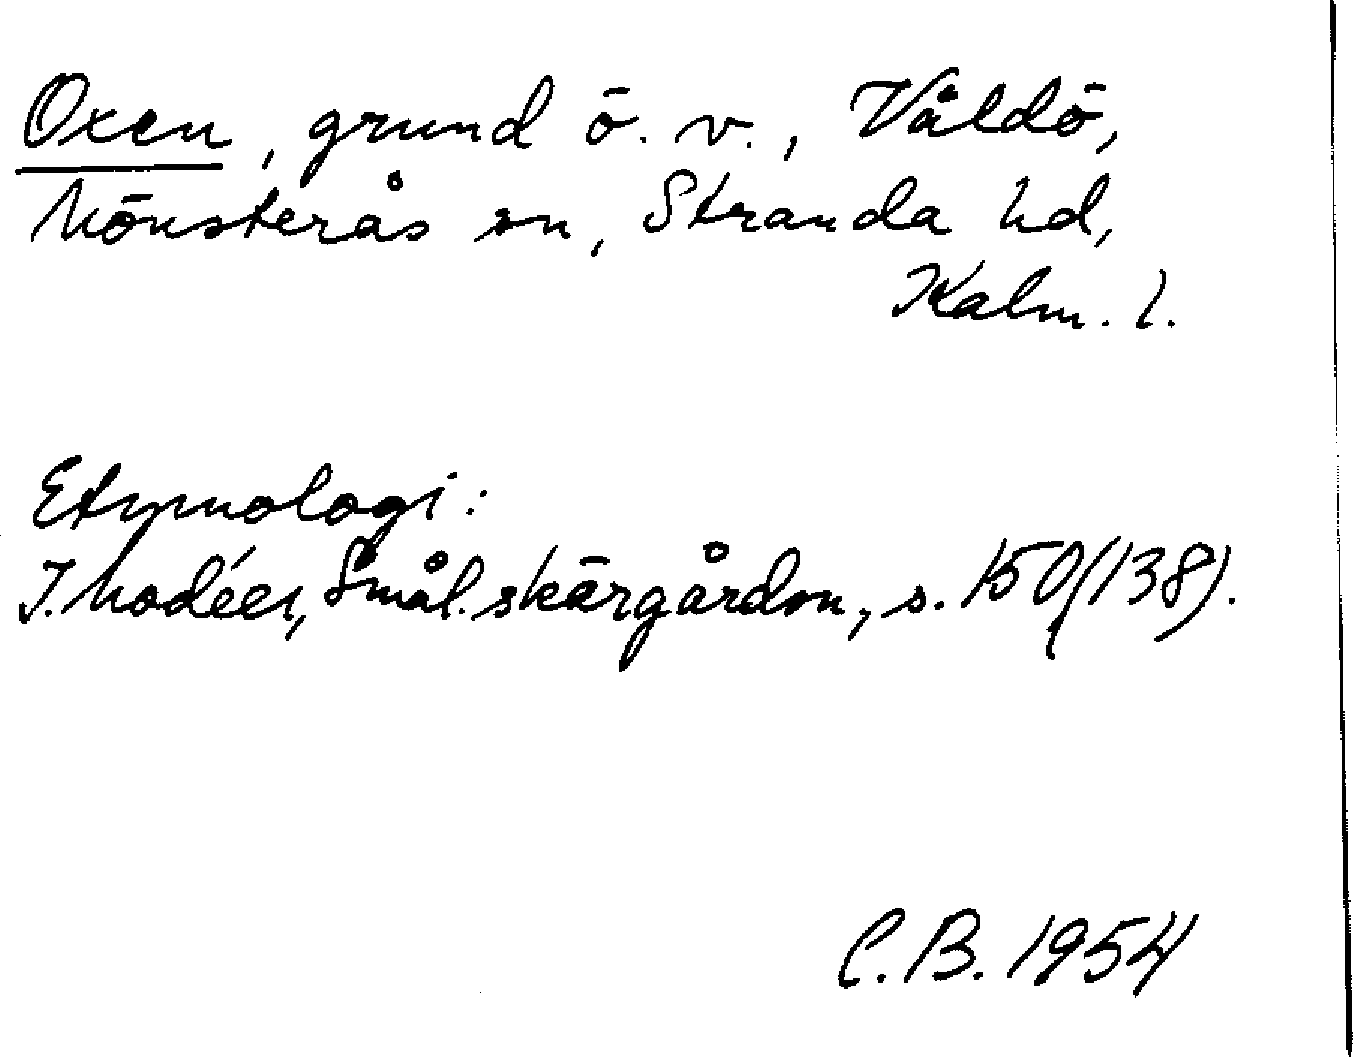 Oxen, grund ö. v., Våldö,
Mönsterås sn, Stranda hd,
Kalm. l.
Etymologi:
I. Modéer, Smål. skärgårdsn, s. 150(138).
C.B. 1954